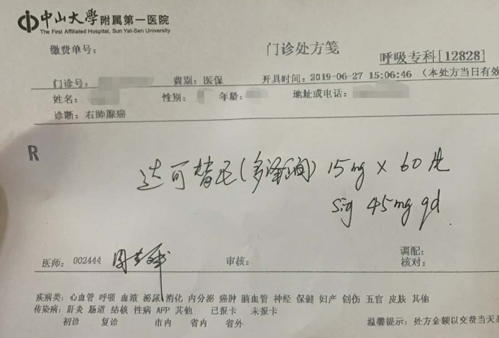 中山大學附属第一医院
The First Affiliated Hospital, Sun Yat-Sen University
缴费单号:
门诊处方笺
呼吸专科[12828]
门诊号
费别: 医保
开具时间: 2019-06-27 15:06:46 (本处方当日有效
姓名:
性别:
年龄:
地址或电话:
诊断: 右肺腺癌
R
达可替尼(多泽润) 15mg × 60片
sig 45mg qd
医师: 002444
审核:
调配:
核对:
疾病类: 心血管 呼吸 血液 泌尿 消化 内分泌 癌肿 脑血管 神经 保健 妇产 创伤 五官 皮肤 其他
传染病: 肝炎 肠道 结核 性病 AFP 其他 已报卡 未报卡
初诊 复诊 市内 省内 省外
温馨提示: 处方金额以交费当天